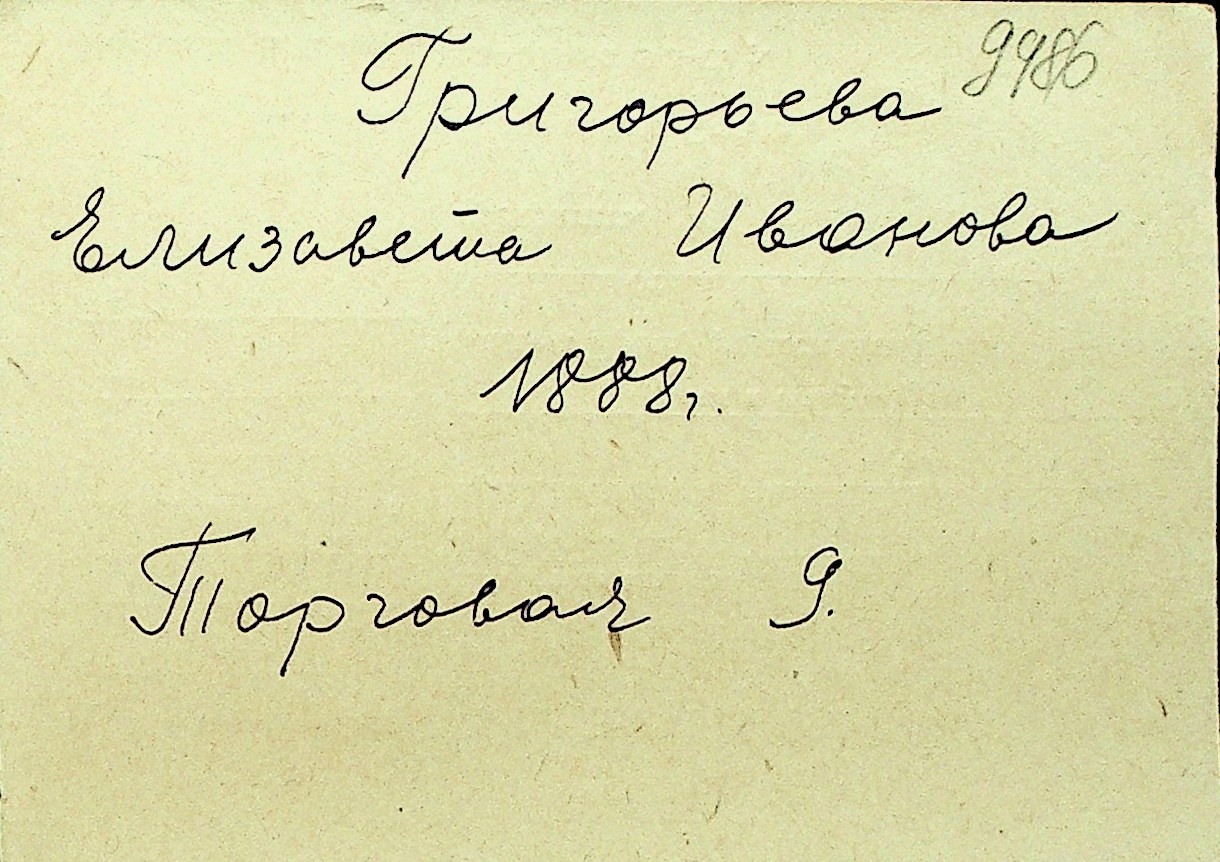 Григорьева 9486
Елизавета Иванова
1888г.
Торговая 9.